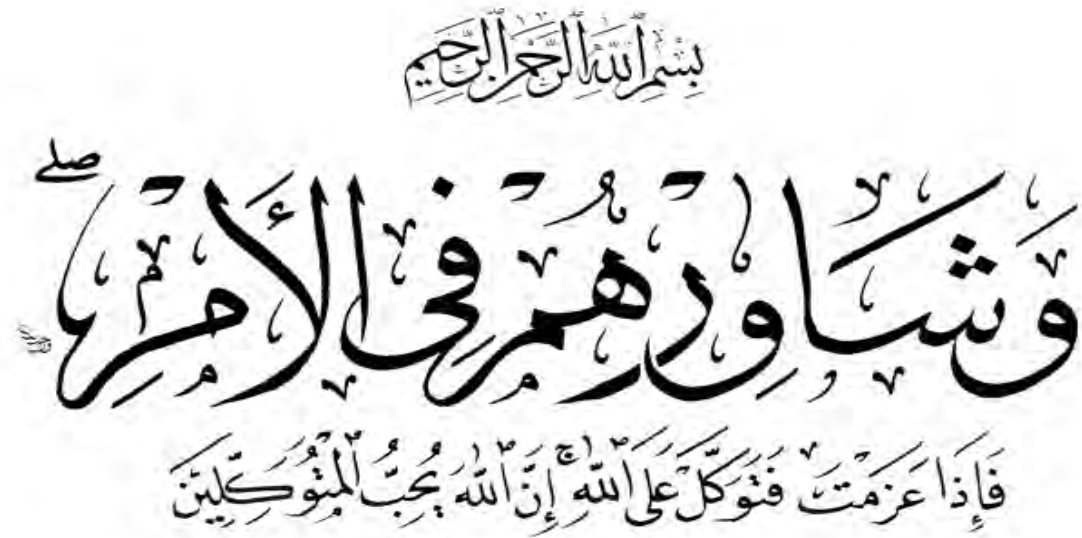 بِسْمِ ٱللَّهِ ٱلرَّحْمَٰنِ ٱلرَّحِيمِ
وَشَاوِرْهُمْ فِي ٱلْأَمْرِ ۖ
فَإِذَا عَزَمْتَ فَتَوَكَّلْ عَلَى ٱللَّهِ ۚ إِنَّ ٱللَّهَ يُحِبُّ ٱلْمُتَوَكِّلِينَ